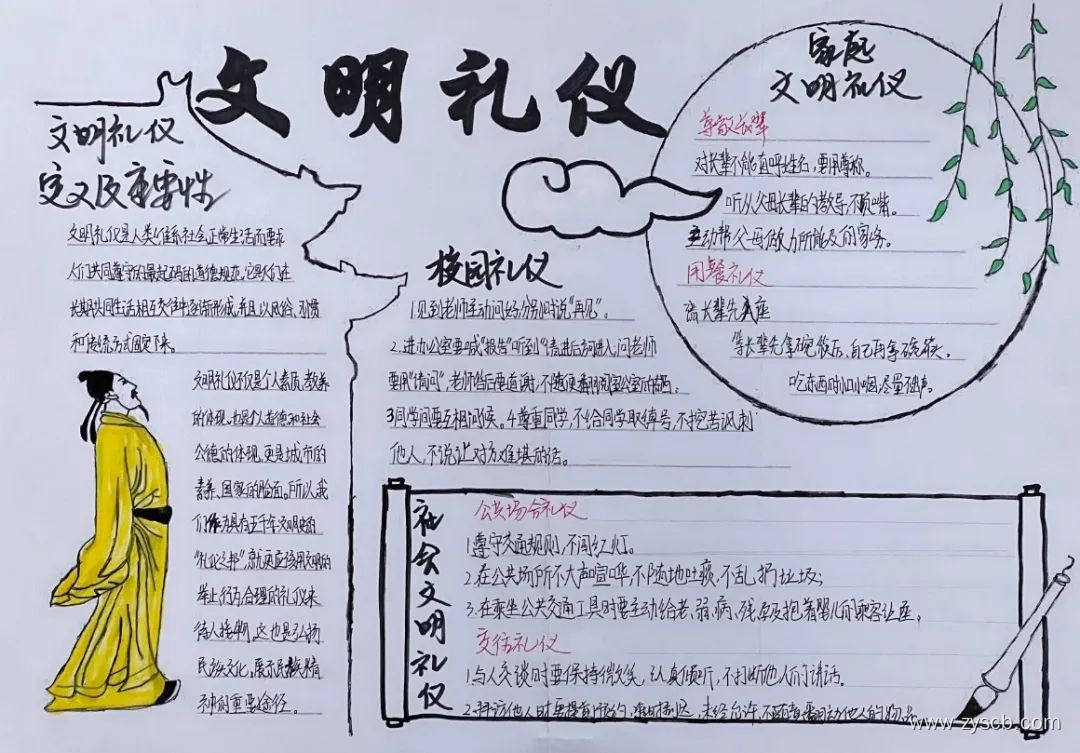 文明礼仪
文明礼仪
定义及重要性
文明礼仪是人类维系社会正常生活而要求
人们共同遵守的最起码的道德规范,它是人们在
长期共同生活相互交往中逐渐形成,并且以风俗、习惯
和传统方式固定下来。
文明礼仪不仅是个人素质、教养
的体现,也是个人道德和社会
公德的体现,更是城市的
素养、国家的脸面。所以我
们作为具有五千年文明史的
“礼仪之邦”,就更应该用文明的
举止行为合理的礼仪来
待人接物,这也是弘扬
民族文化,展示民族精
神的重要途径。
校园礼仪
1.见到老师主动问好,分别时说“再见”。
2.进办公室要喊“报告”听到“请进后方可进入,问老师
要用“请问”,老师答后要道谢,不随便翻阅办公室的东西。
3.同学间要互相问候。4.尊重同学,不给同学取绰号,不挖苦讽刺
他人,不说让对方难堪的话。
家庭
文明礼仪
尊敬长辈
对长辈不能直呼姓名,要用尊称。
听从父母长辈的教导,不顶嘴。
主动帮父母做力所能及的家务。
用餐礼仪
请长辈先就座
等长辈先拿碗筷后,自己再拿碗筷。
吃东西时小口小咽,尽量不出声。
社会文明礼仪
公共场合礼仪
1.遵守交通规则,不闯红灯。
2.在公共场所不大声喧哗,不随地吐痰,不乱扔垃圾;
3.在乘坐公共交通工具时要主动给老、弱、病、残、孕及抱着婴儿的乘客让座。
交往礼仪
1.与人交谈时要保持微笑,认真倾听,不打断他人们讲话。
2.拜访他人时要提前预约,准时到达,未经允许,不随意翻动他人的物品
www.zyscb.com